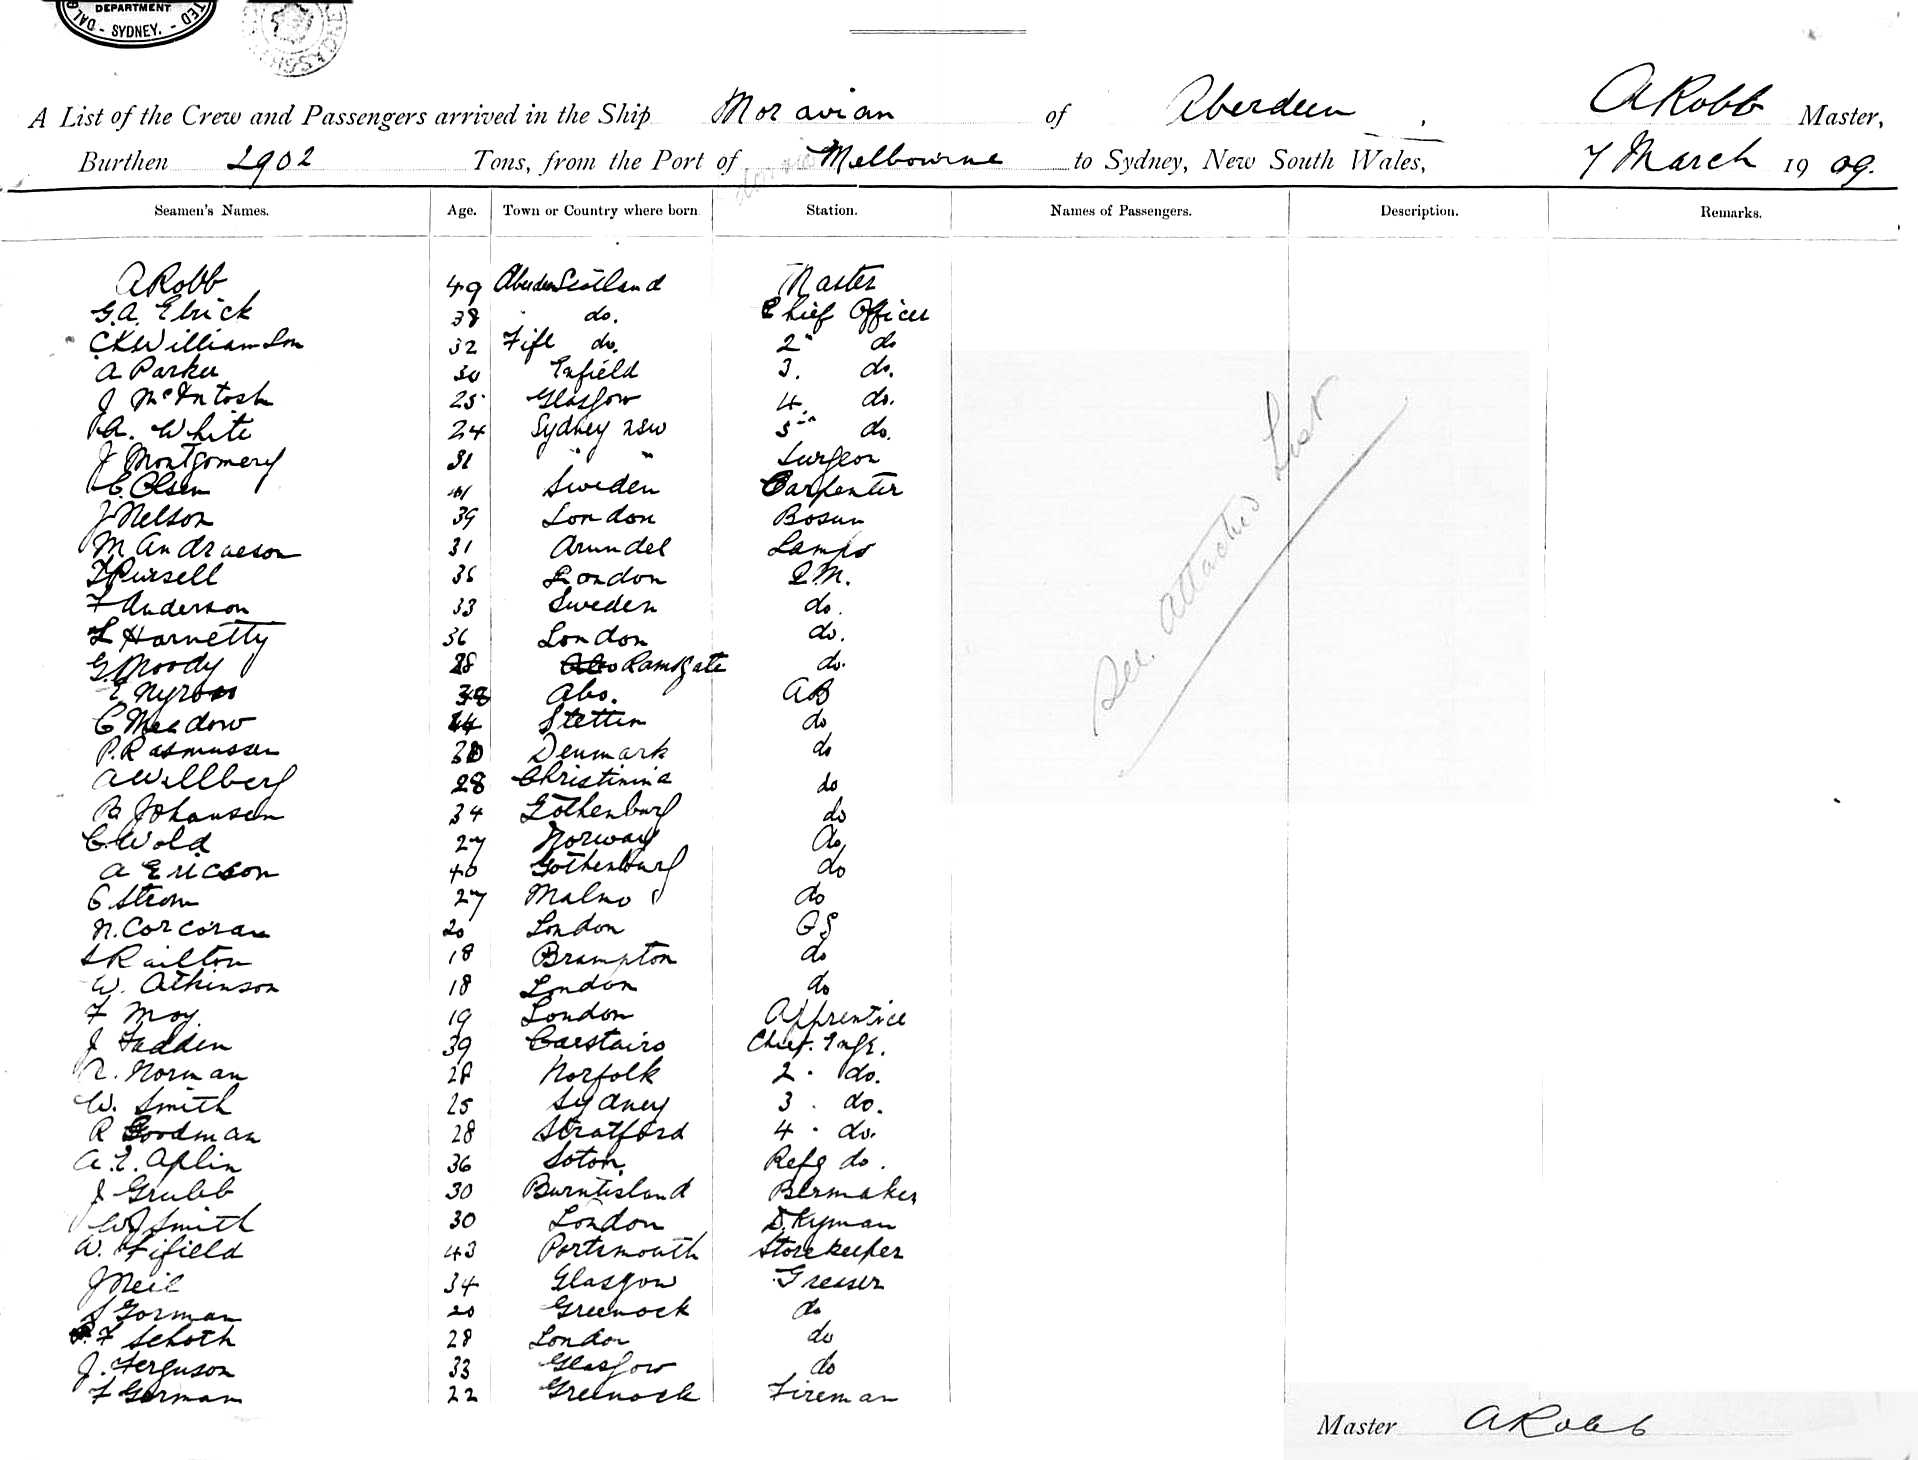 DEPARTMENT
- SYDNEY. -
A List of the Crew and Passengers arrived in the Ship Moravian of Aberdeen, ARobb Master,
Burthen 2902 Tons, from the Port of Melbourne to Sydney, New South Wales, 7 March 1909.
Seamen's Names. Age. Town or Country where born Station. Names of Passengers. Description. Remarks.
ARobb 49 Aberdeen Scotland Master
G.A. Elrick 38 do. Chief Officer
C.K.Williamson 32 Fife do. 2" do
A Parker 30 Enfield 3. do.
J McIntosh 25 Glasgow 4. do.
A. White 24 Sydney NSW 5" do.
J Montgomery 31 " " Surgeon
C. Olsen 41 Sweden Carpenter
J Nelson 39 London Bosun
M Andraeson 31 Arundel Lamps
Pursell 36 London Q.M.
F Anderson 33 Sweden do.
L Harnetty 36 London do.
G. Moody 28 Ramsgate do.
Abo. AB
C Meadow 44 Stettin do
P. Rasmussen Denmark do
A Willberg 28 Christinina do
B Johansen 34 Gothenburg do
C Wold 27 Norway do
A Ericson 40 Gothenburg do
C Strom 27 Malmo do
N. Corcoran 20 London OS
S Railton 18 Brampton do
W. Atkinson 18 London do
F Moy. 19 London Apprentice
J Fadden 39 Carstairs Chief. Engr.
R. Norman 28 Norfolk 2 . do.
W. Smith 25 Sydney 3 . do.
R Goodman 28 Stratford 4 . do.
A.E. Aplin 36 Soton. Refg do.
J Grubb 30 Burntisland Blrmaker
WJ Smith 30 London D.Kyman
W. Fifield 43 Portsmouth Storekeeper
J Neil 34 Glasgow Greaser
S Gorman 20 Greenock do
F Schoth 28 London do
J. Ferguson 33 Glasgow do
F Gorman 22 Greenock Fireman
See attached List
Master ARobb